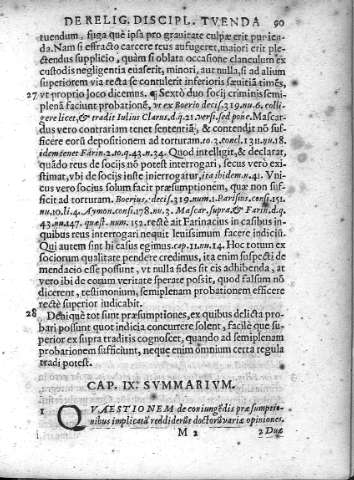 DE RELIG. DISCIPL. TVENDA 90
tuendum, fuga quę ipsa pro grauitate culpæ erit puniẽ-
da. Nam si effracto carcere reus aufugeret, maiori erit ple-
ctendus supplicio, quàm si oblata occasione clanculum ex
custodis negligentia euaserit, minori, aut nulla, si ad alium
superiorem via recta se contulerit insontis sæuitiã timẽs,
27 vt proprio loco dicemus. ¶ Sextò duo socij criminis semi-
plenã faciunt probationẽ, vt ex Boerio decis. 319. nu. 6. colli-
gere licet, & tradit Iulius Clarus, d. q. 21. versi. sed pone. Mascar-
dus vero contrariam tenet sententiã, & contendit nõ suf-
ficere eorũ depositionem ad torturam. to. 3. concl. 1311. nu. 18.
idem tenet Farin. 2. to. q. 43. n. 34. Quod intelligit, & declarat,
quãdo reus de socijs nõ potest interrogari, secus verò exi-
stimat, vbi de socijs iustè inierrogatur, ita ibidem n. 41. Vni-
cus vero socius solum facit præsumptionem, quæ non suf-
ficit ad torturam. Boerius, decis. 319. num. 1. Parisius, consi. 151.
nu. 10. li. 4. Aymon. consi. 178. nu. 3. Mascar. supra, & Farin. d. q.
43. nu. 147. quæst. num. 152. restè ait Farinacius in casibus in-
quibus reus interrogari nequit leuissimum facere indiciũ.
Qui autem sint hi casus egimus. cap. 11. nu. 14. Hoc totum ex
sociorum qualitate pendere credimus, ita enim suspecti de
mendacio esse possunt, vt nulla fides sit eis adhibenda, at
vero ibi de eoqum veritate sperate possit, quod falsum nõ
dicerent, testimonium, semiplenam probationem efficere
rectè superior iudicabit.
28 Deniquè tot sunt præsumptiones, ex quibus delicta pro-
bari possunt quot indicia concurrere solent, facilè que su-
perior ex supra traditis cognoscet, quando ad semiplenam
probationem sufficiunt, neque enim õmnium certa regula
tradi potest.
CAP. IX. SVMMARIVM.
1 QVAESTIONEM de coniungẽdis præsumptio-
nibus implicatã reddiderũt doctorũ varia opiniones.
M 2 2 Duæ